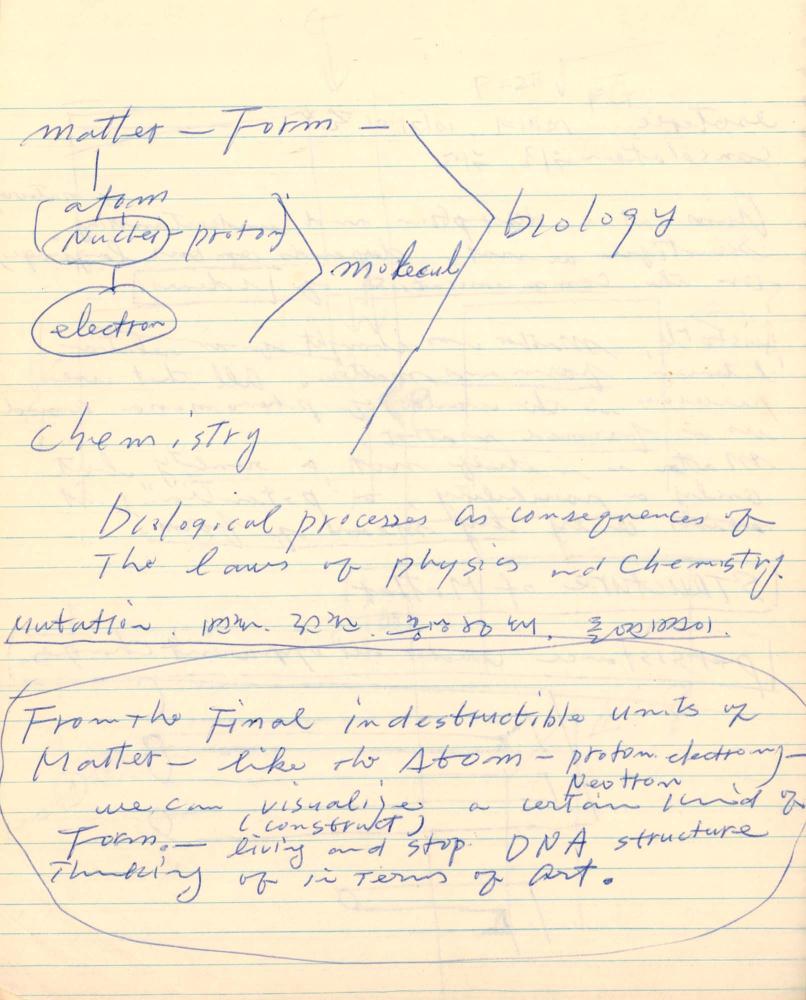 matter – Form –
atom
(Nucles – proton)
electron
molecul
biology
Chemistry
Biological processes as consequences of
The laws of physics and Chemistry.
Mutation.
From the Final indestructible units of
Matter – like the Atom – proton. electron) –
Neotron
we can visualize a certain kind of
(construct)
Form. – living and stop DNA structure
Thinking of in Terms of Art.